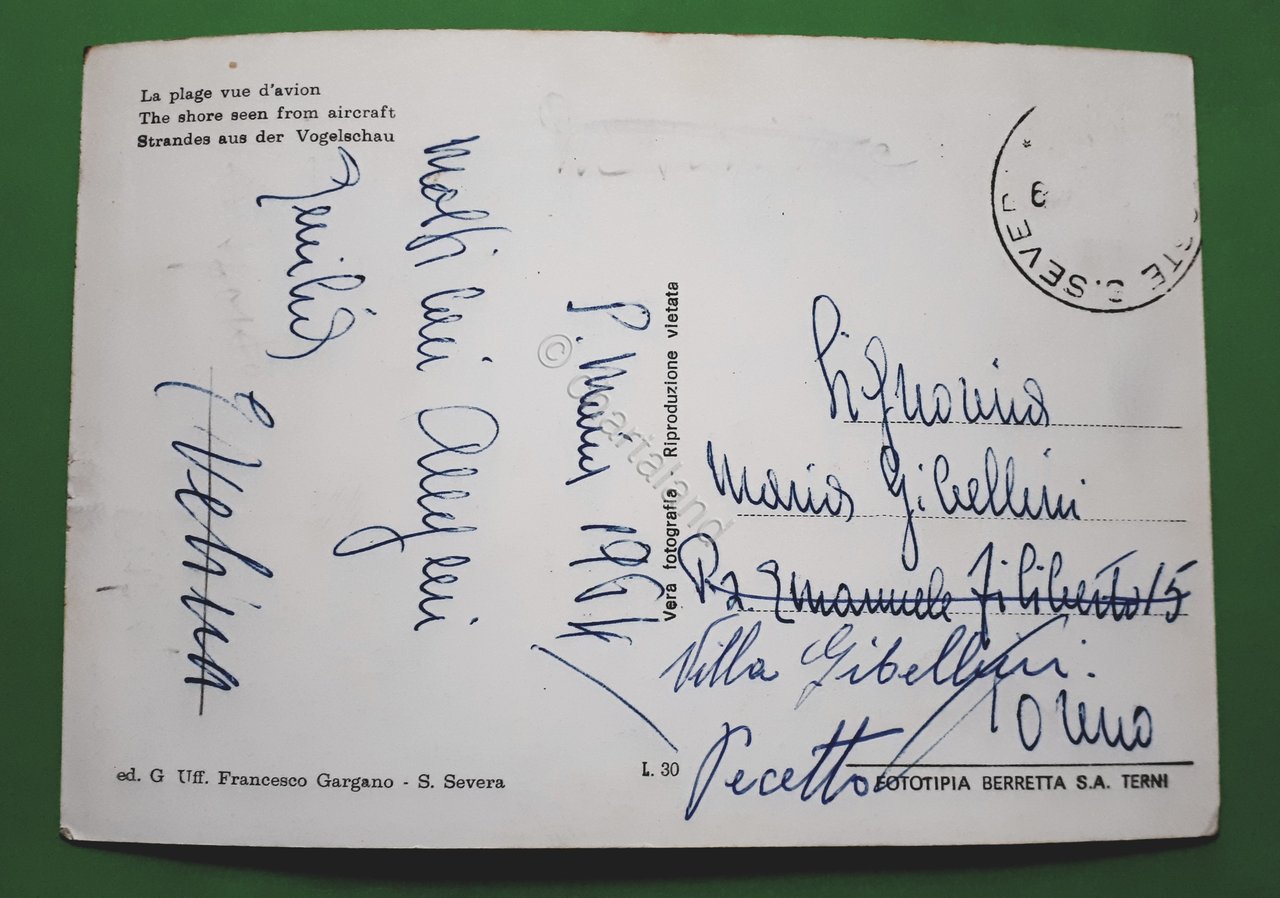 La plage vue d'avion
The shore seen from aircraft
Strandes aus der Vogelschau
S. Marina 1964
Molti cari auguri
Vera fotografia - Riproduzione vietata
Signorina
Maria Gibellini
Pz. Emanuele Filiberto 15
Villa Gibellini.
Torino
Pecetto
ed. G Uff. Francesco Gargano - S. Severa
L. 30
FOTOTIPIA BERRETTA S.A. TERNI
© Cartaland